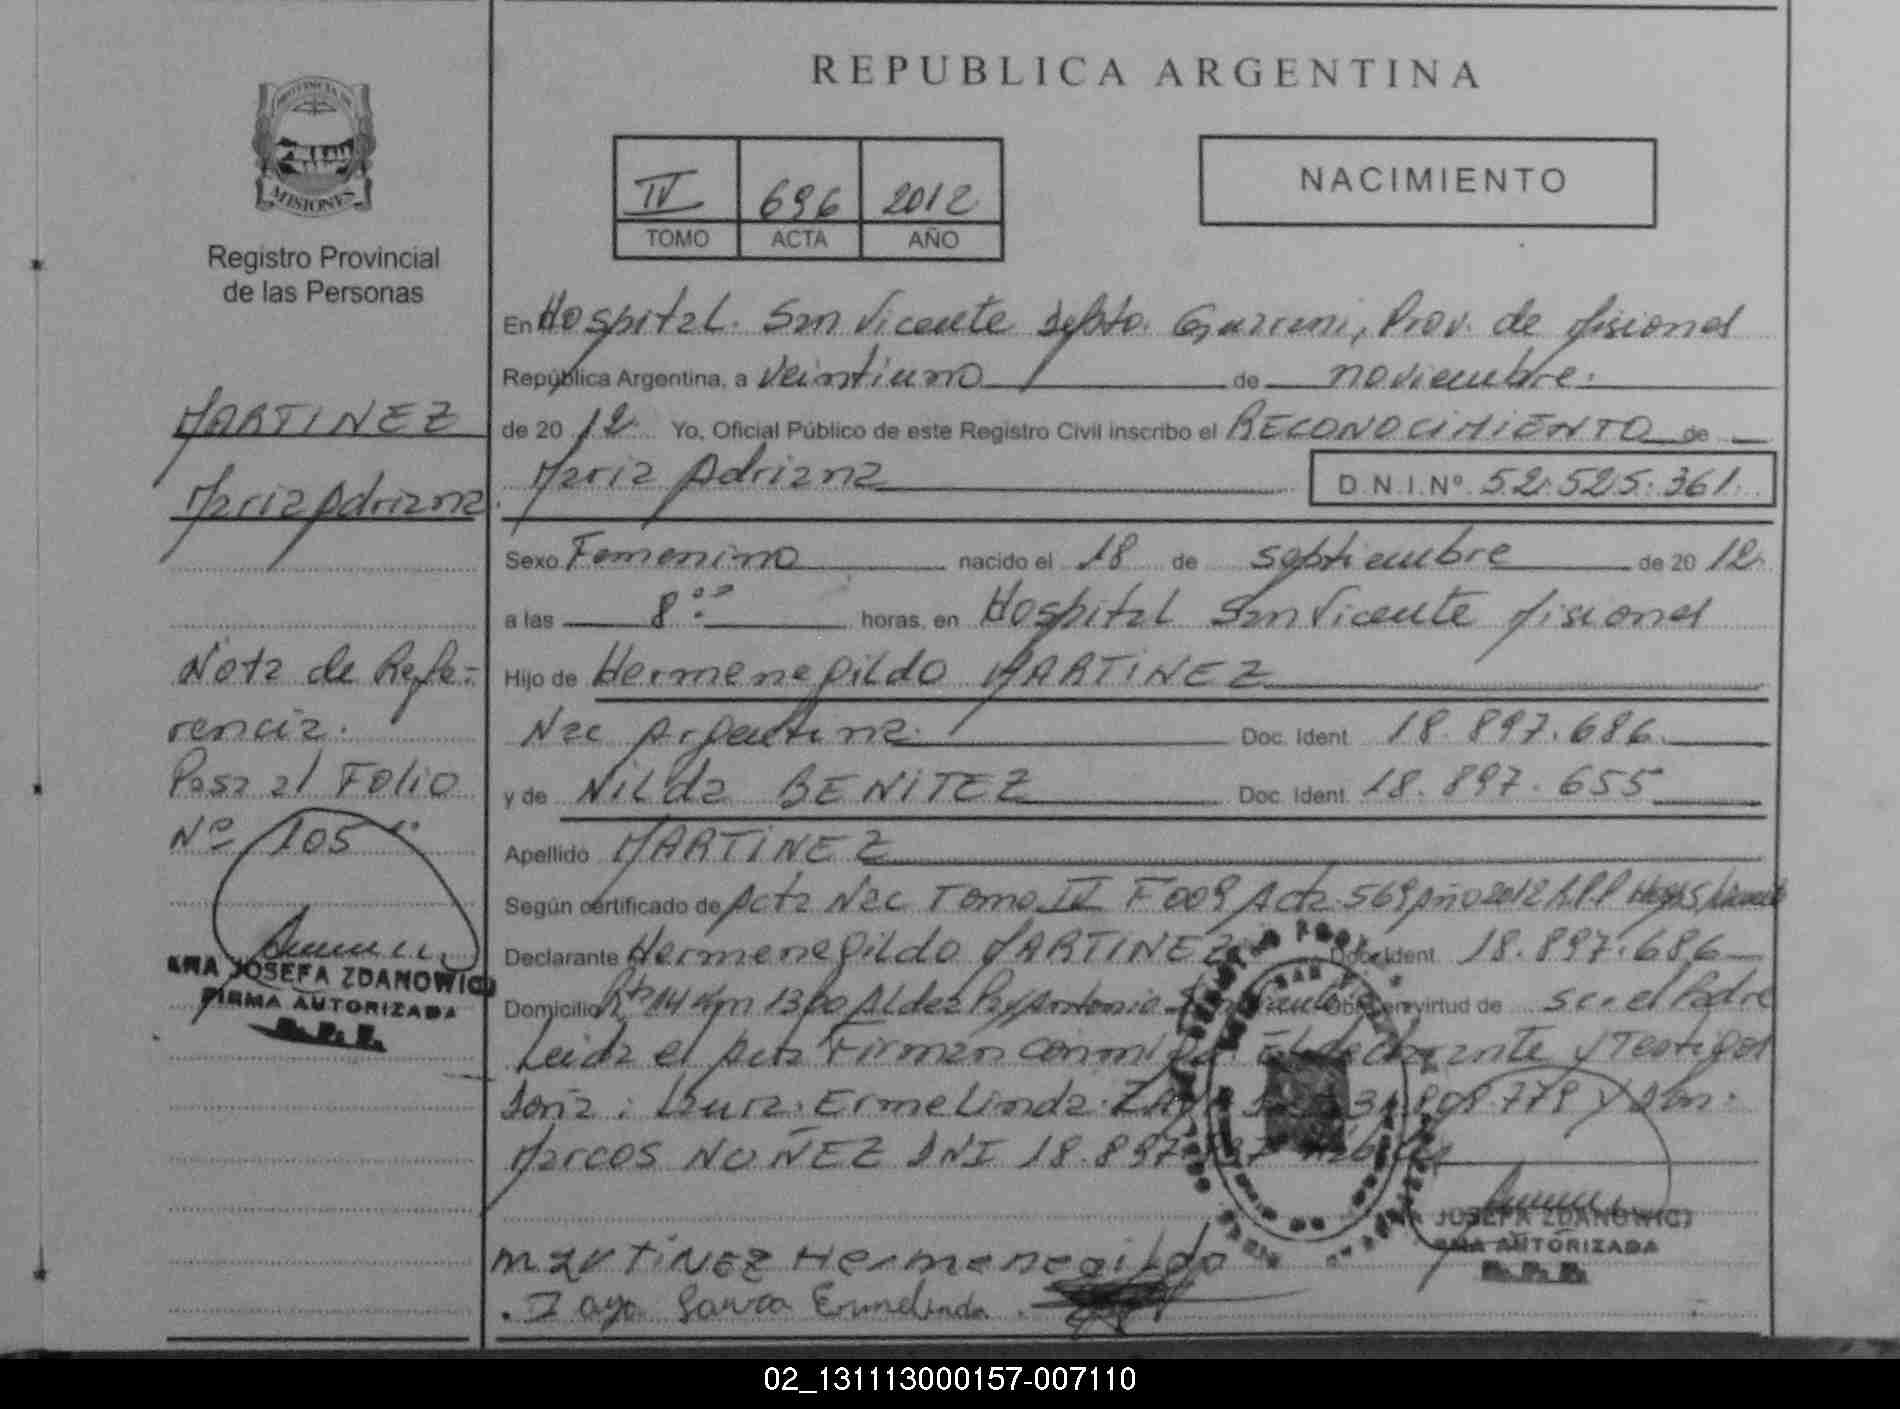 PROVINCIA DE
MISIONES
Registro Provincial
de las Personas
MARTINEZ
Maria Adriana
Nota de Refe-
rencia.
Pasa al Folio
Nº 105
JOSEFA ZDANOWICZ
FIRMA AUTORIZADA
R.P.P.
REPUBLICA ARGENTINA
IV 696 2012
TOMO ACTA AÑO
NACIMIENTO
En Hospital San Vicente Depto. Guarani, Prov. de Misiones
República Argentina, a veintiuno de noviembre.
de 20 12 Yo, Oficial Público de este Registro Civil inscribo el RECONOCIMIENTO de
Maria Adriana D.N.I.Nº 52.525.361.
Sexo Femenino nacido el 18 de septiembre de 20 12
a las 8 ºº horas, en Hospital San Vicente Misiones
Hijo de Hermenegildo MARTINEZ
Nac Argentina Doc. Ident 18.897.686
y de Nilda BENITEZ Doc. Ident. 18.897.655
Apellido MARTINEZ
Según certificado de Acta Nac Tomo IV F 009 Acta 569 Año 2012 R.P.P
Declarante Hermenegildo MARTINEZ Doc. Ident 18.897.686
Domicilio Rta 14 Km 1300 Aldea Antonio Obra en virtud de ser el Padre
Leida el Acta Firman conmigo El declarante y Testigos
Doña: Laura Ermelinda y Don.
Marcos NUÑEZ DNI 18.897
MARTINEZ Hermenegildo
Zaya Laura Ermelinda.
JOSEFA ZDANOWICZ
FIRMA AUTORIZADA
R.P.P.
02_131113000157-007110